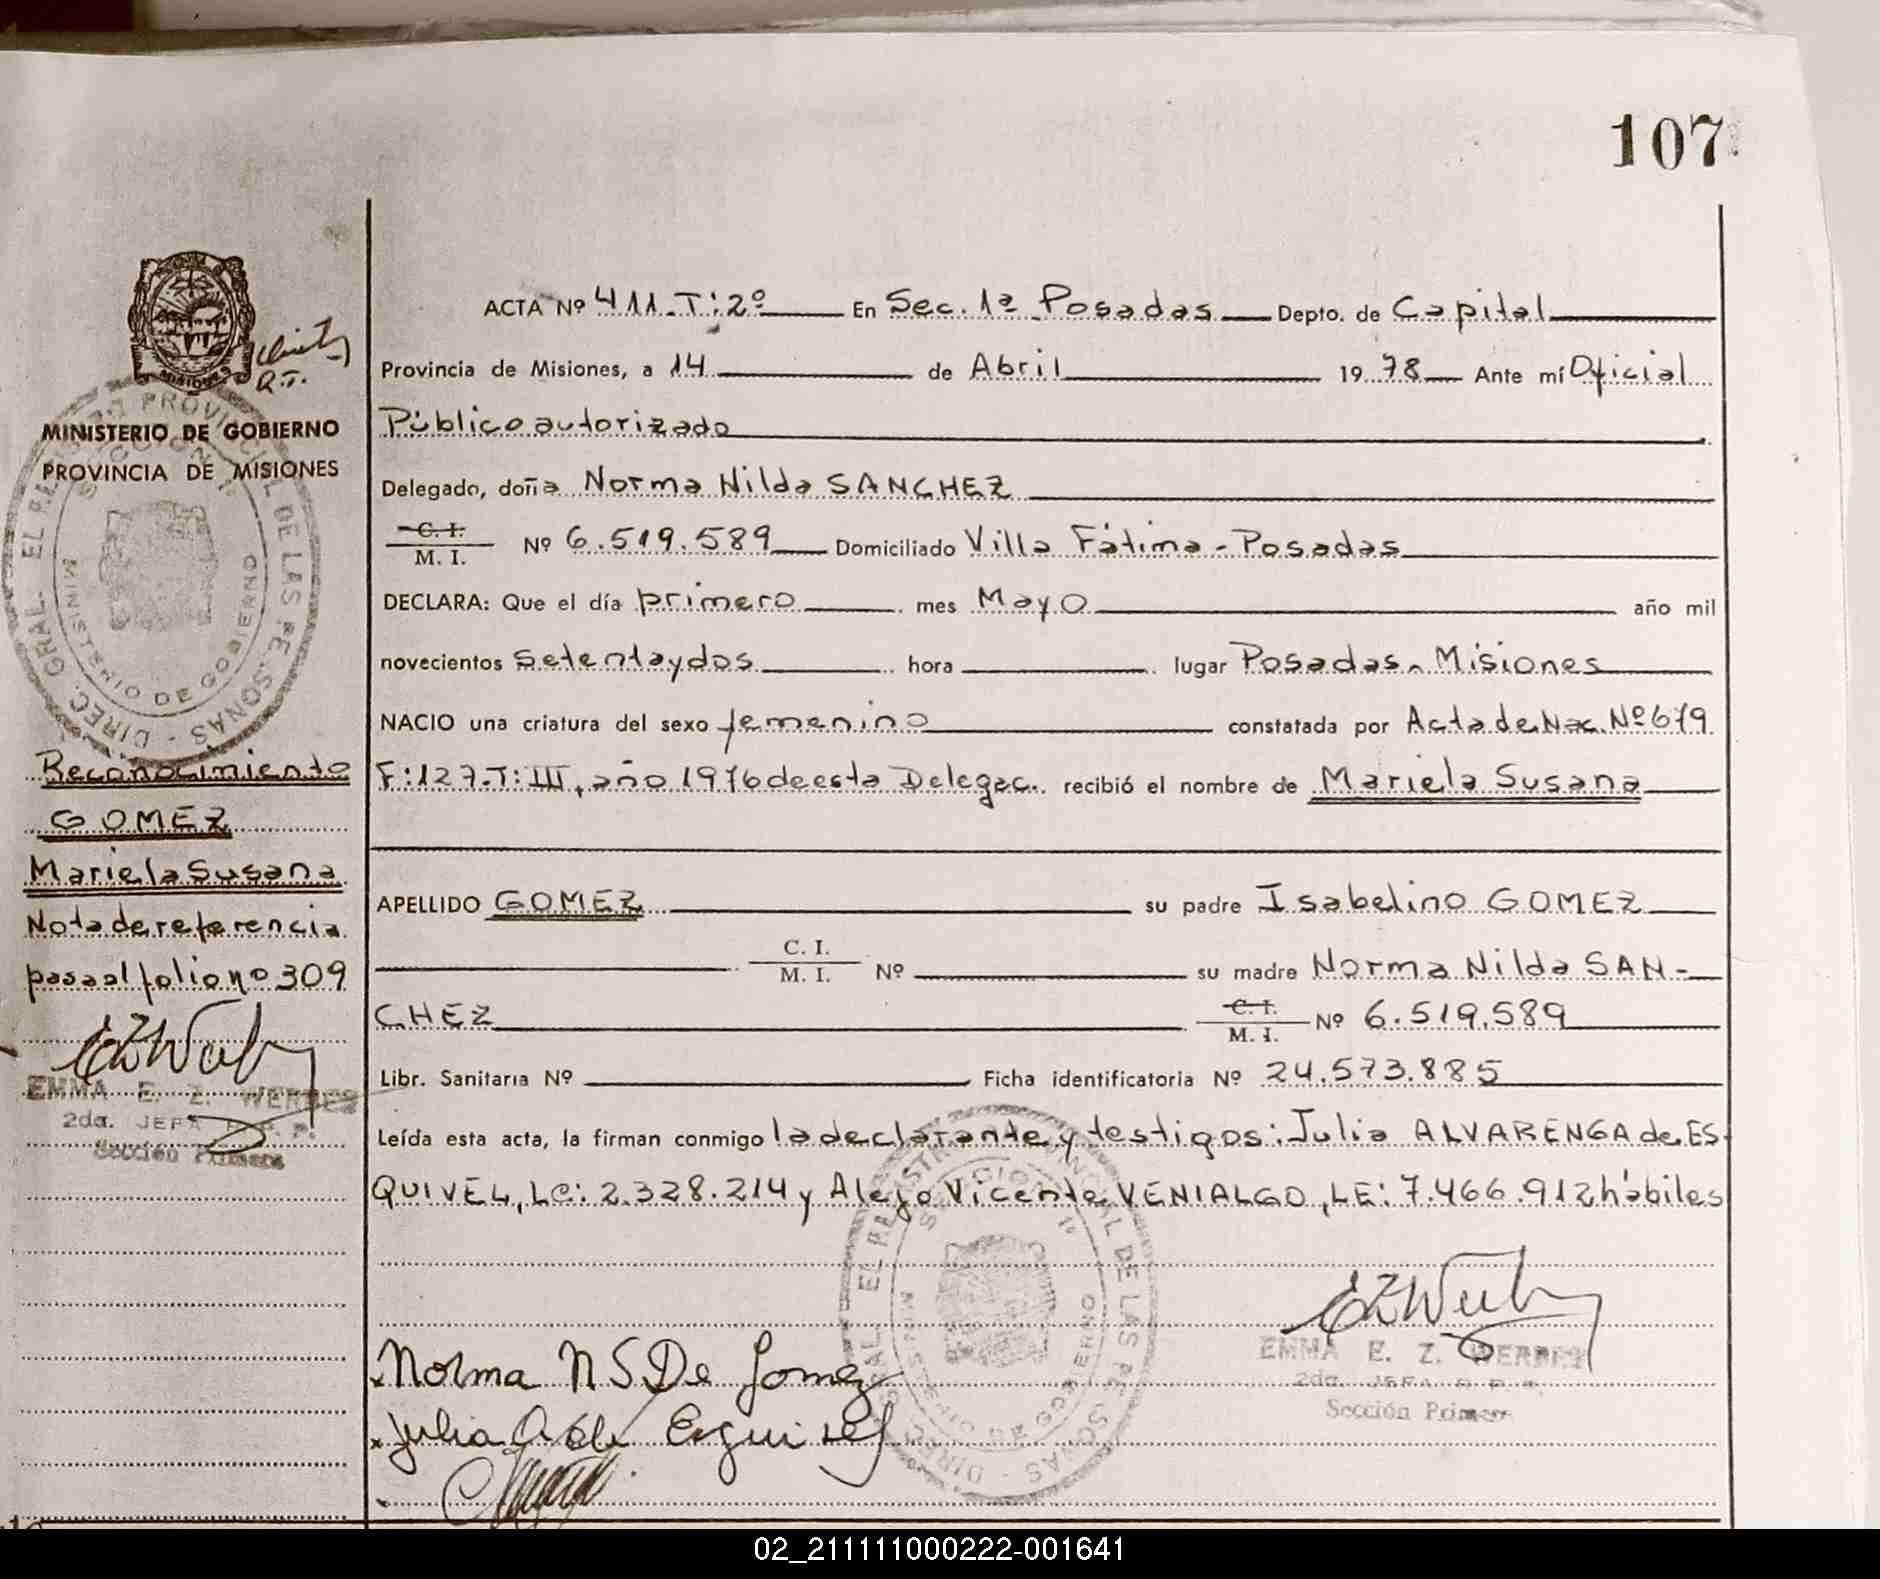 107
ACTA Nº 411-T:2º En Sec. 1ª Posadas Depto. de Capital
Provincia de Misiones, a 14 de Abril 1978 Ante mí Oficial
Público autorizado
Delegado, doña Norma Nilda SANCHEZ
C. I.
M. I. Nº 6.519.589 Domiciliado Villa Fátima - Posadas
DECLARA: Que el día primero mes Mayo año mil
novecientos setentaydos hora lugar Posadas - Misiones
NACIO una criatura del sexo femenino constatada por Acta de Nac. Nº 679
F:127.T:III, año 1976 de esta Delegac. recibió el nombre de Mariela Susana
APELLIDO GOMEZ su padre Isabelino GOMEZ
C. I.
M. I. Nº su madre Norma Nilda SAN-
CHEZ C. I.
M. I. Nº 6.519.589
Libr. Sanitaria Nº Ficha identificatoria Nº 24.573.885
Leída esta acta, la firman conmigo la declarante y testigos: Julia ALVARENGA de ES-
QUIVEL, LC: 2.328.214 y Alejo Vicente VENIALGO, LE: 7.466.912 hábiles
Norma N S De Gomez
Julia A de Esquivel
EMMA E. Z. WERBES
2da. JEFA
Sección Primera
MINISTERIO DE GOBIERNO
PROVINCIA DE MISIONES
MISIONES
DIREC. GRAL. EL REGISTRO PROVINCIAL DE LAS PERSONAS
SECCION 1º
MINISTERIO DE GOBIERNO
Reconocimiento
GOMEZ
Mariela Susana
Nota de referencia
pasa al folio nº 309
EMMA E. Z. WERBES
2da. JEFA
Sección Primera
DIREC. GRAL. EL REGISTRO PROVINCIAL DE LAS PERSONAS
SECCION 1º
MINISTERIO DE GOBIERNO
02_211111000222-001641